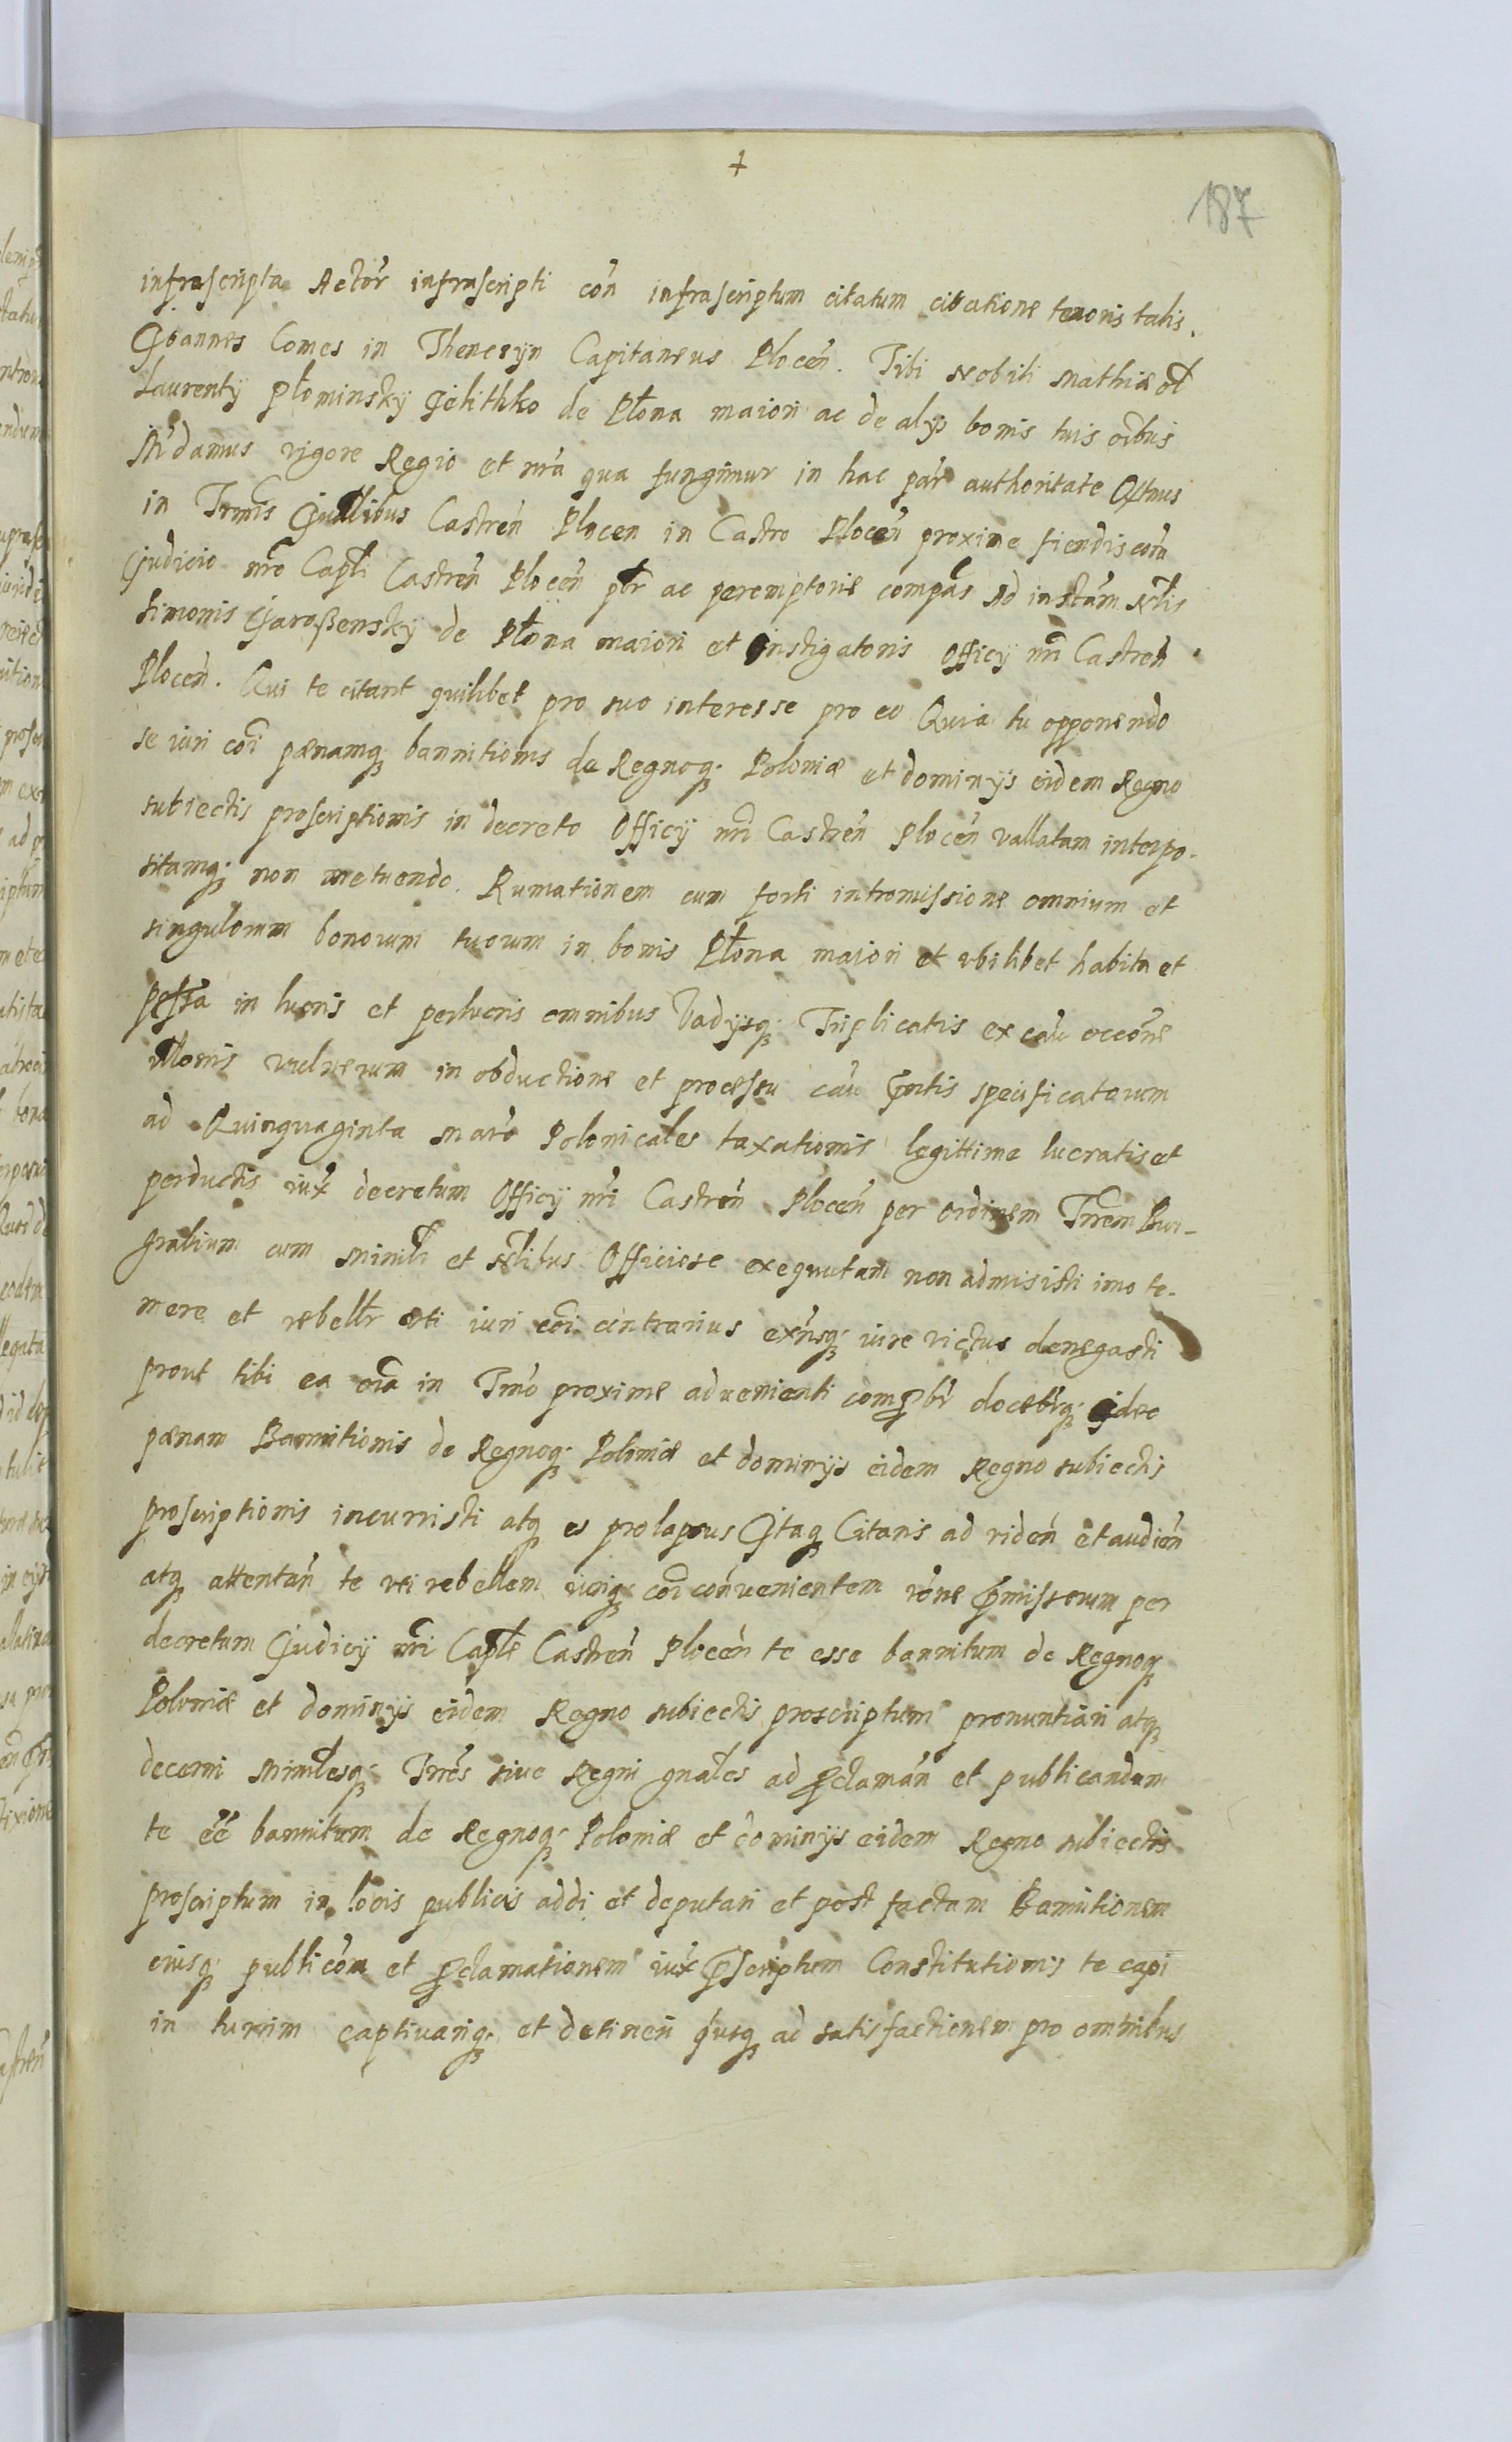 +
187
infrascripta Actor̃ infrascripti con̄ infrascriptum citatum citatione tenoris talis.
Joannes Comes in Thenczyn Capitaneus Plocen̄. Tibi Nobili Mathiæ ol̄
Laurentÿ Płominskÿ Jelithko de Płona maiori ac de alÿs bonis tuis oībus
Mādamus vigore Regio et nr̄a qua fungimur in hac par̄ authoritate Qtnus
in Trm̄is Judlibus Castren̄ Plocen in Castro Plocen̄ proxime fiendis corā
Judicio nr̄o Capłi Castren̄ Plocen̄ ptr̄ ac peremptorie compās Ad instām Nłis
Simonis Jaroßenskÿ de Płona maiori et Instigatoris Officÿ nr̄i Castren̄
Plocen̄. Qui te citant quilibet pro suo interesse pro eo Quia tu opponendo
se iuri coī pœnamq; bannitionis de Regnoq; Poloniæ et dominÿs eidem Regno
subiectis proscriptionis in decreto Officÿ nr̄i Castren̄ Plocen̄ vallatam interpo-
sitamq; non metuendo. Rumationem cum forti intromissione omnium et
singulorum bonorum tuorum in bonis Płona maiori et ubilibet habita et
pessa in lucris et perlucris omnibus Vadÿsq; Triplicatis ex cau occōne
vulnerum in obductione et processu cau pn̄tis specificatorum
ad Quinquaginta Marc̄ Polonicales taxationis legittime lucratis et
perductis iux̄ decretum Officÿ nr̄i Castren̄ Plocen̄ per ordinem Trrem Bur-
grabium cum Ministl̄i et Nłibus Officiose exequutam non admisisti imo te-
mere et rebellr̄ uti iuri coī contrarius exn̄sq; iure victus denegasti
prout tibi ea oīa in Trmo proxime advenienti comp̄br̄ docebr̄q; Ideo
pœnam Bannitionis de Regnoq; Poloniæ et dominÿs eidem Regno subiectis
proscriptionis incurristi atq; es prolapsus Itaq; Citaris ad viden̄ et audien̄
atq; attentan̄ te uti rebellem iuriq; coī con̄venientem rōne p̄missorum per
decretum Judicÿ nr̄i Capłis Castren̄ Plocen̄ te esse bannitum de Regnoq;
Poloniæ et dominÿs eidem Regno subiectis proscriptum pronuntiari atq;
decerni Minił̄esq; Trrēs sive Regni gnał̄es ad p̄claman̄ et publicandum
te eē bannitum de Regnoq; Poloniæ et dominÿs eidem Regno subiectis
proscriptum in locis publicis addi et deputari et post factam Bannitionem
eiusq; publicōm et p̄clamationem iux̄ p̄scriptum Constitutionis te capi
in turrim captivariq; et detineri q̄usq; ad satisfactionem pro omnibus